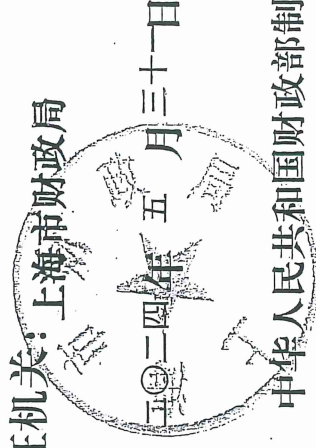 机关：上海市财政局
二〇二四年 五 月三十一日
中华人民共和国财政部制